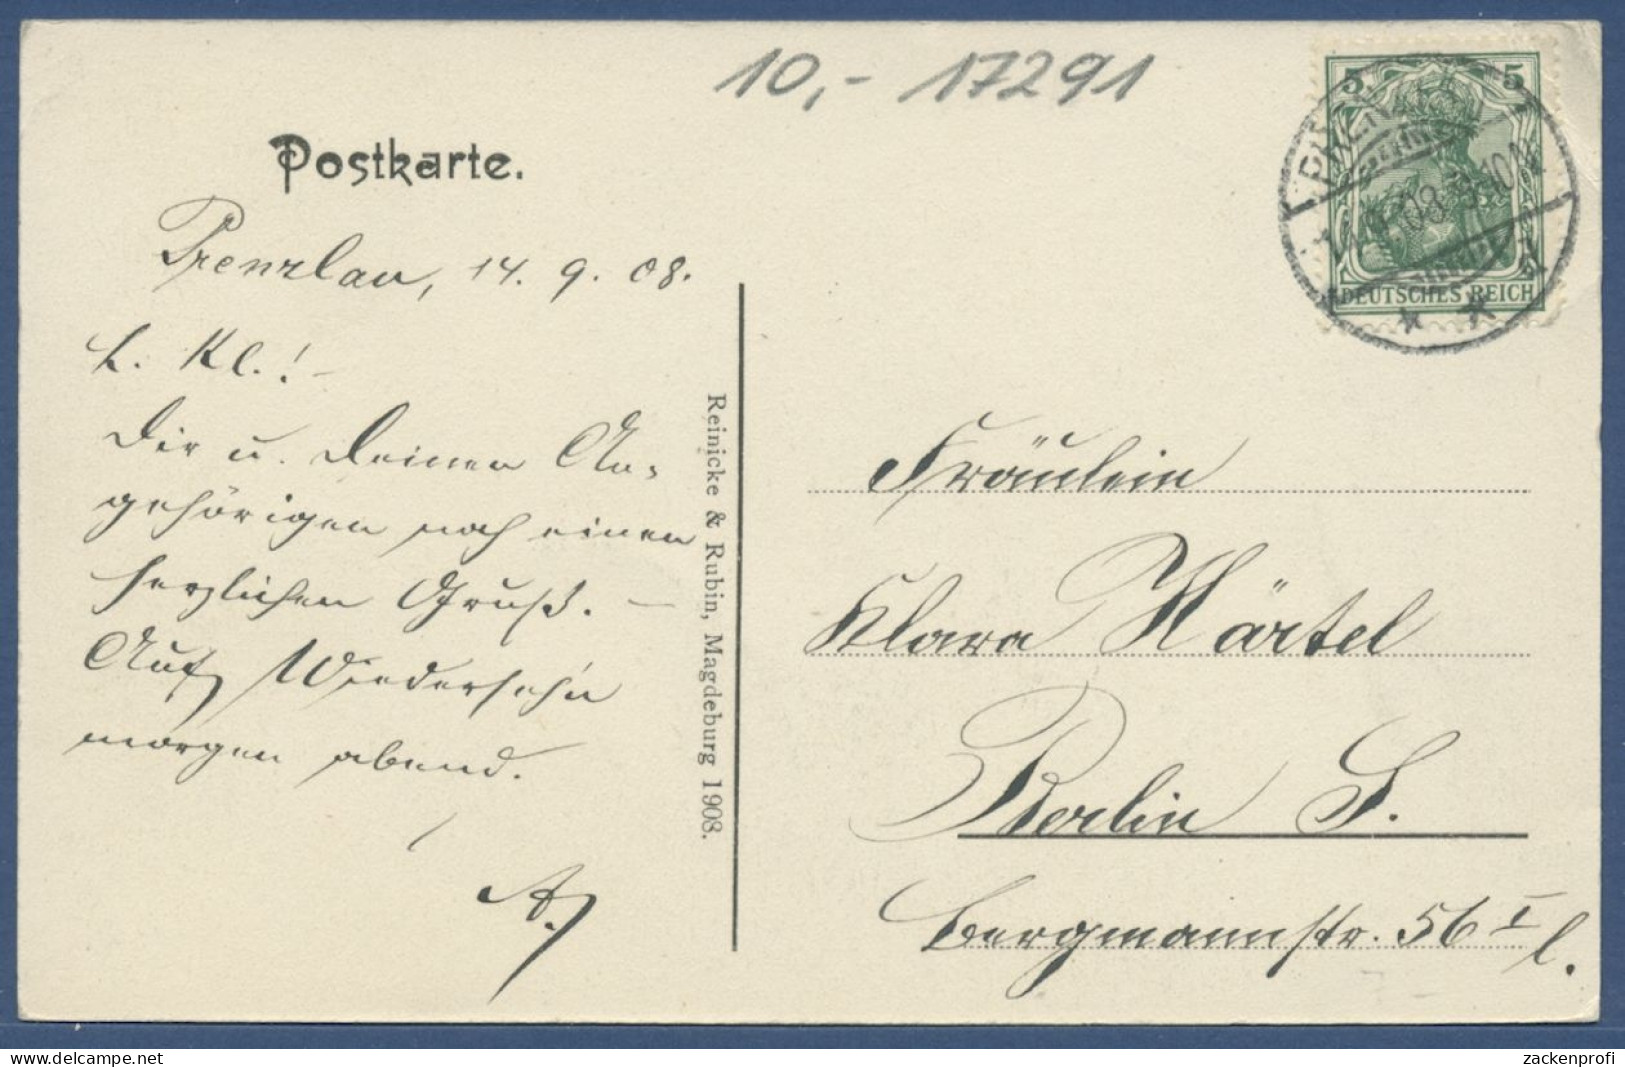 10,- 17291
Postkarte.
Prenzlau, 14. 9. 08.
L. Kl.! –
Dir u. Deinen An-
gehörigen noch einen
herzlichen Gruß. –
Auf Wiedersehn
morgen abend.
A.
Reinicke & Rubin, Magdeburg 1908.
5 5
DEUTSCHES REICH
PRENZLAU
08
Fräulein
Klara Härtel
Berlin S.
Bergmannstr. 56 I l.
zackenprofi
www.delcampe.net